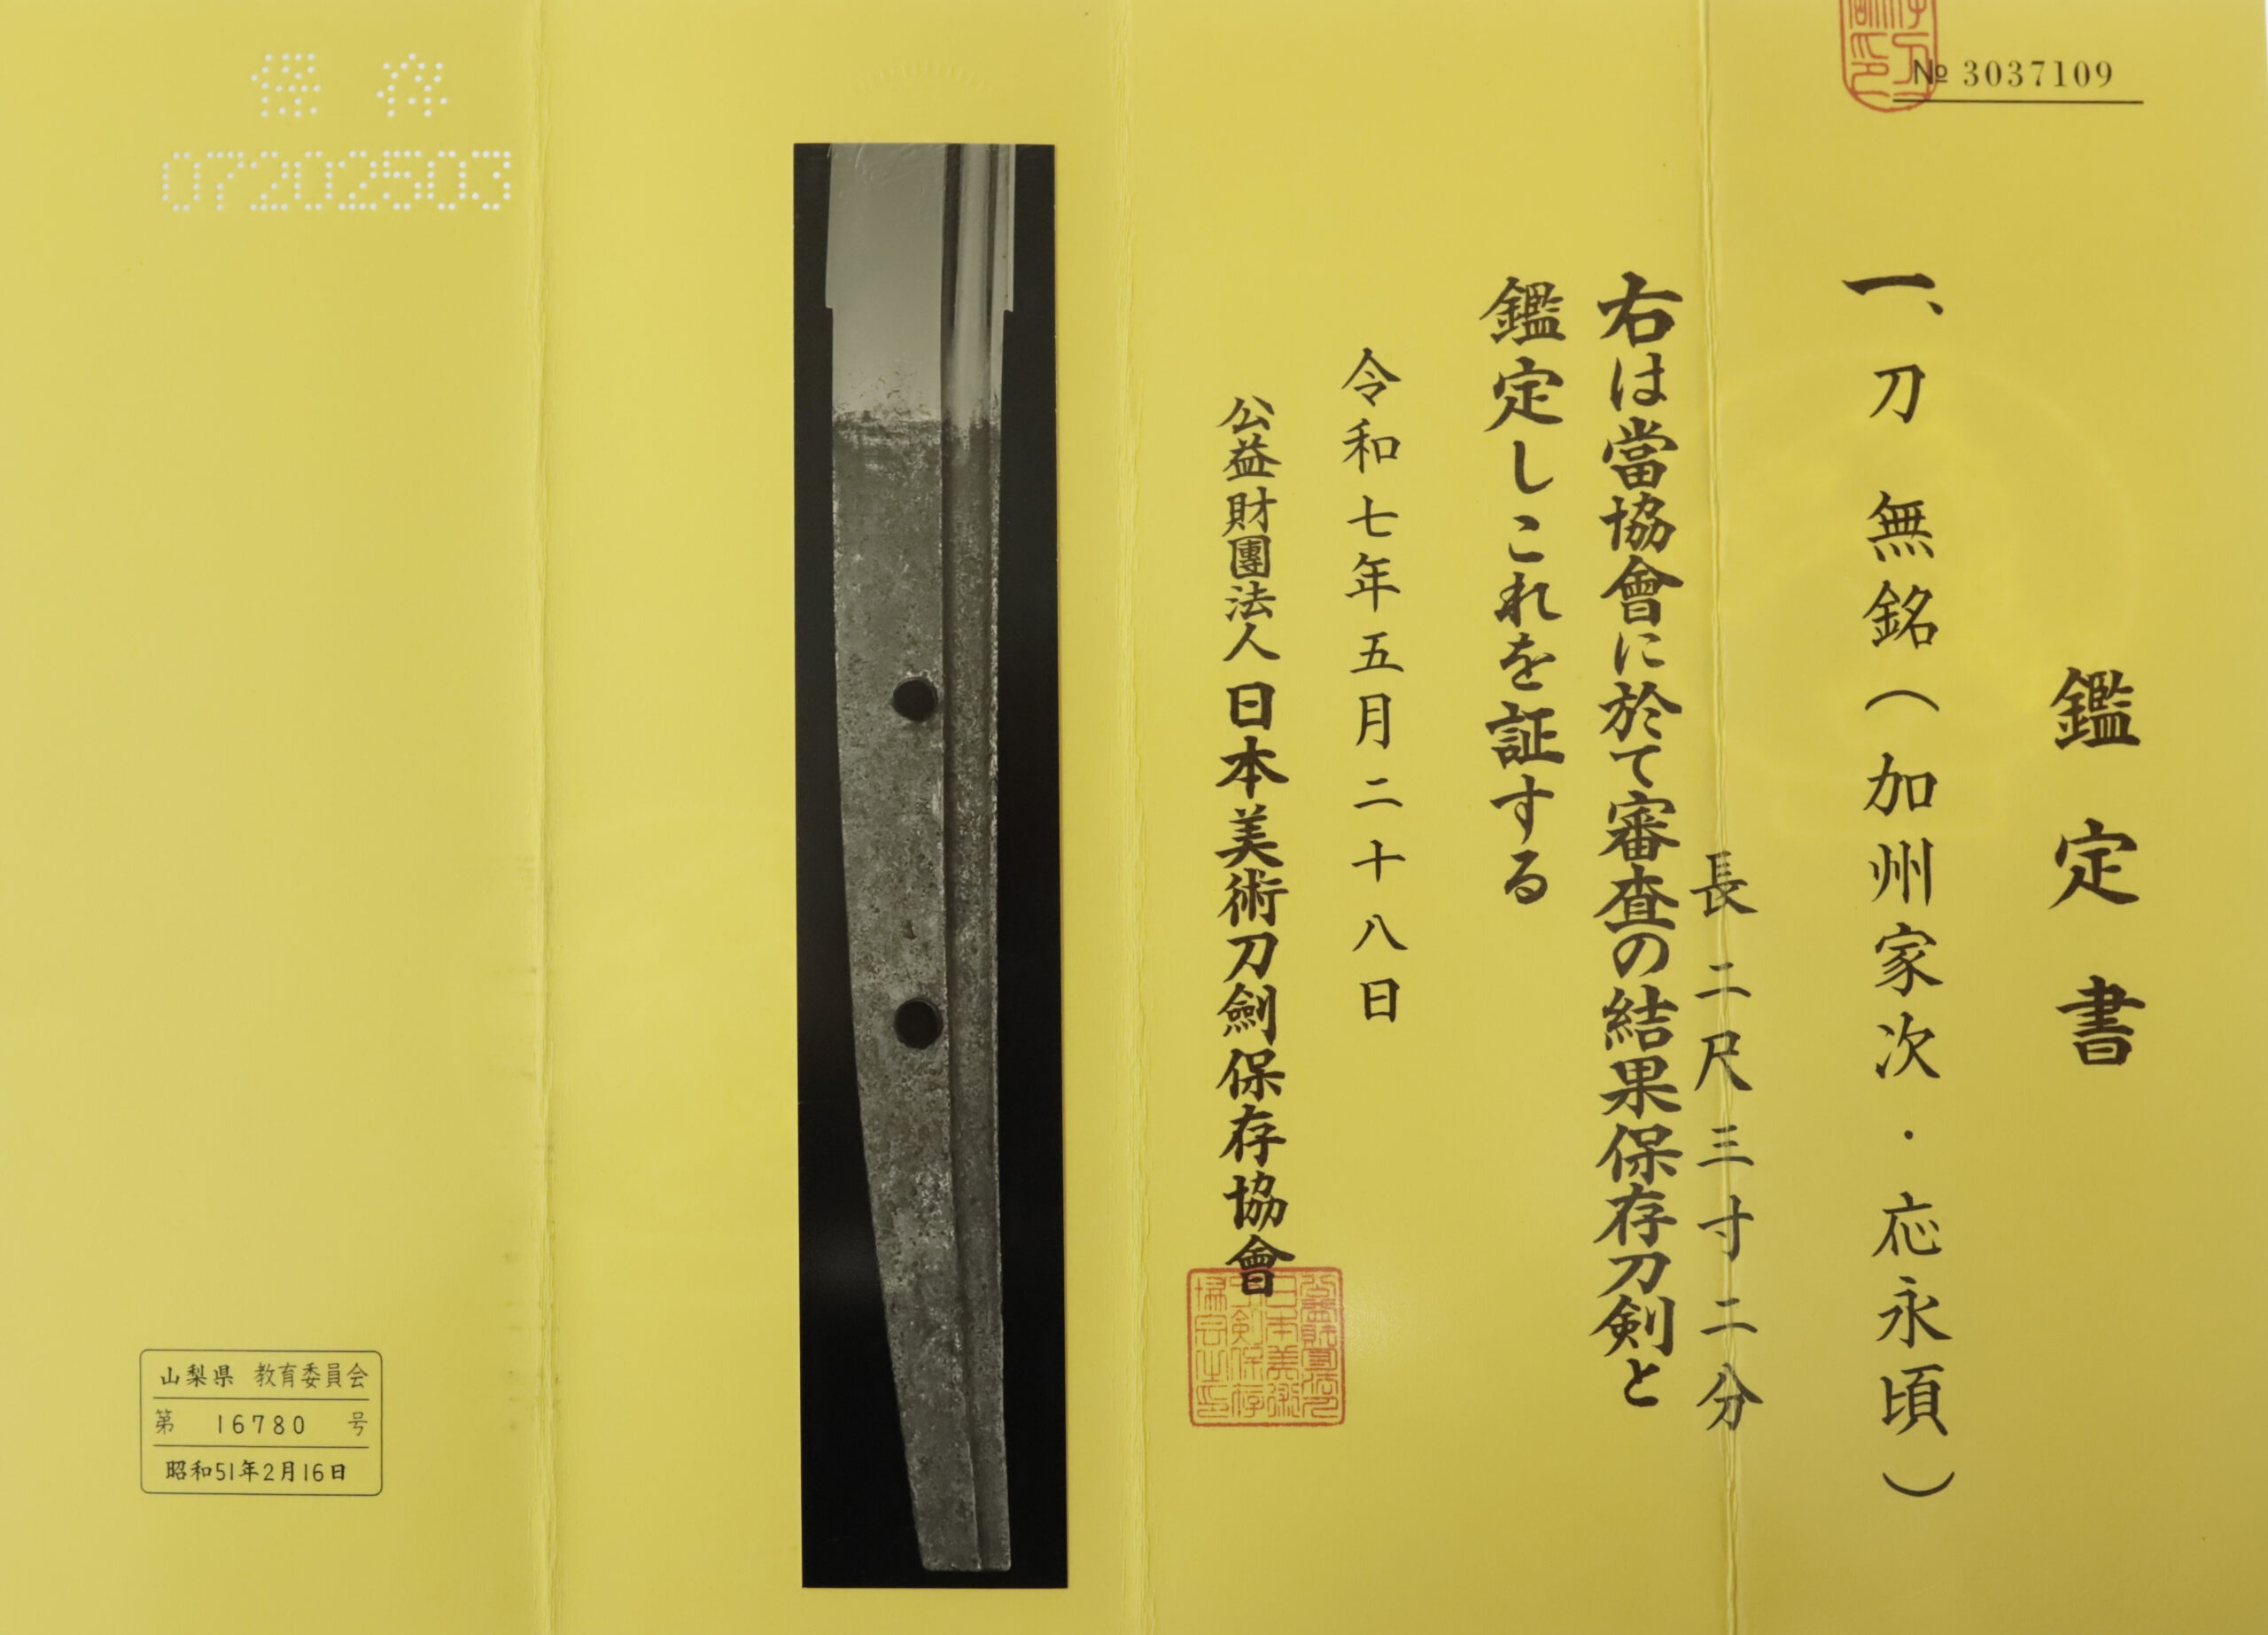 № 3037109
鑑定書
一、刀 無銘(加州家次・応永頃)
長二尺三寸二分
右は當協會に於て審査の結果保存刀剣と
鑑定しこれを証する
令和七年五月二十八日
公益財團法人日本美術刀劍保存協會
保存
07202503
山梨県 教育委員会
第 16780 号
昭和51年2月16日